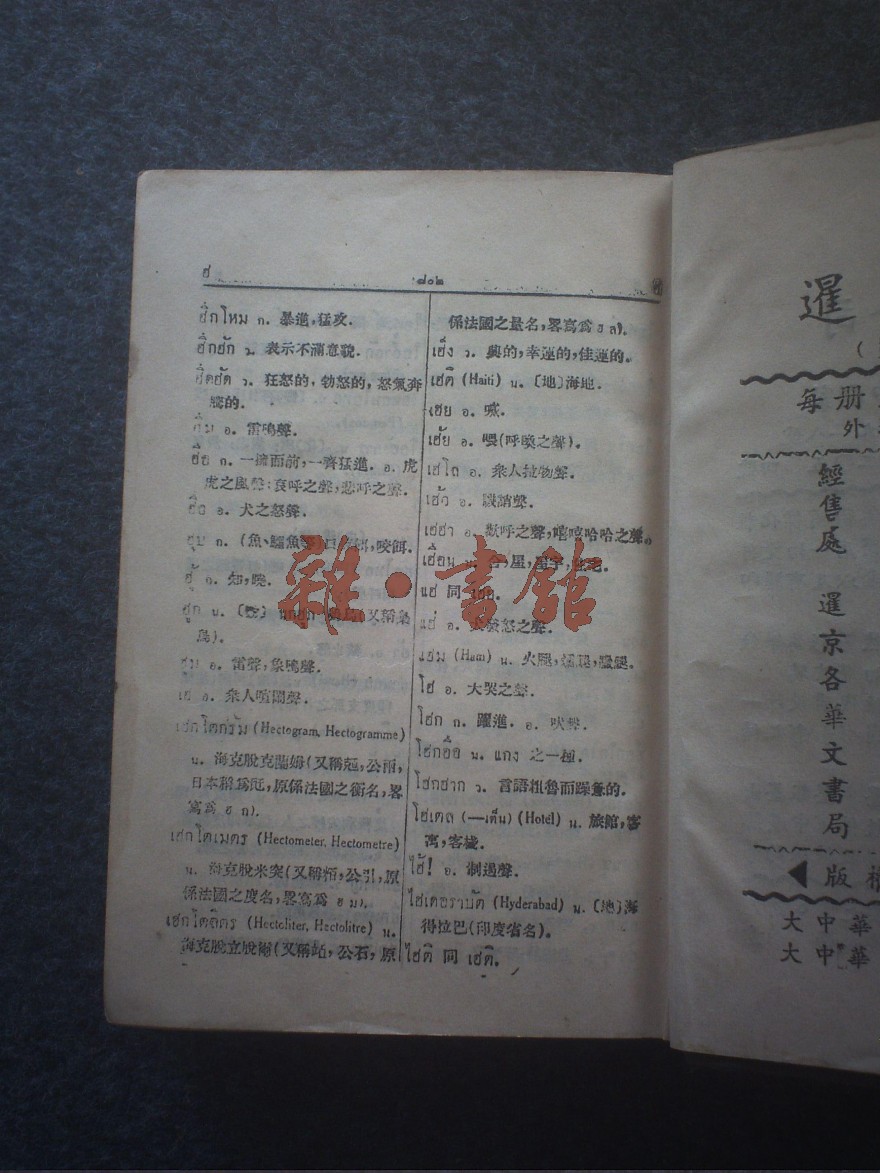 ฮ
๘๐๒
ฮึกโหม ก. 暴進,猛攻.
ฮึกฮัก ว. 表示不滿意貌.
ฮึดฮัด ว. 狂怒的,勃怒的,怒氣奔
騰的.
อ. 雷鳴聲.
ก. 一擁而前,一齊猛進. อ. 虎
虎之風聲:哀呼之聲,悲呼之聲.
อ. 犬之怒聲.
ฮุบ ก. (魚,鱷魚等) 咬餌.
อ. 知,曉.
ฮูก น. (又稱梟
鳥).
อ. 雷聲,象鳴聲.
เฮ อ. 衆人喧鬧聲.
เฮกโตกรัม (Hectogram, Hectogramme)
น. 海克脫克蘭姆(又稱 公兩,
日本稱爲 原係法國之衡名,畧
寫爲 ฮ ก).
เฮกโตเมตร (Hectometer, Hectometre)
น. 海克脫米突(又稱 公引,原
係法國之度名,畧寫爲 ฮ ม).
เฮกโตลิตร (Hectoliter, Hectolitre) น.
海克脫立脫 (又稱 公石,原
係法國之量名,畧寫爲 ฮ ล).
เฮ็ง ว. 興的,幸運的,佳運的.
เฮติ (Haiti) น. 〔地〕海地.
เฮย อ. 喊.
เฮ้ย อ. 喂(呼喚之聲).
เฮโล อ. 衆人拉物聲.
เฮ้ว อ. 譏誚聲.
เฮฮา อ. 歡呼之聲,嘻嘻哈哈之聲。
เฮือน น. 星
แฮ 同
แฮ่ อ. 發怒之聲.
แฮม (Ham) น. 火腿, 臘腿.
โฮ อ. 大哭之聲.
โฮก ก. 躍進. อ. 吠聲.
โฮกอือ น. แกง 之一種.
โฮกฮาก ว. 言語粗魯而躁急的.
โฮเตล (—เต็น) (Hotel) น. 旅館,客
寓,客棧.
ไฮ้! อ. 制遏聲.
ไฮเดอราบัด (Hyderabad) น. 〔地〕海
得拉巴(印度省名).
ไฮติ 同 เฮติ.
雜·書館
暹
(
每册
外
經售處 暹京各華文書局
◀版權
大中華
大中華